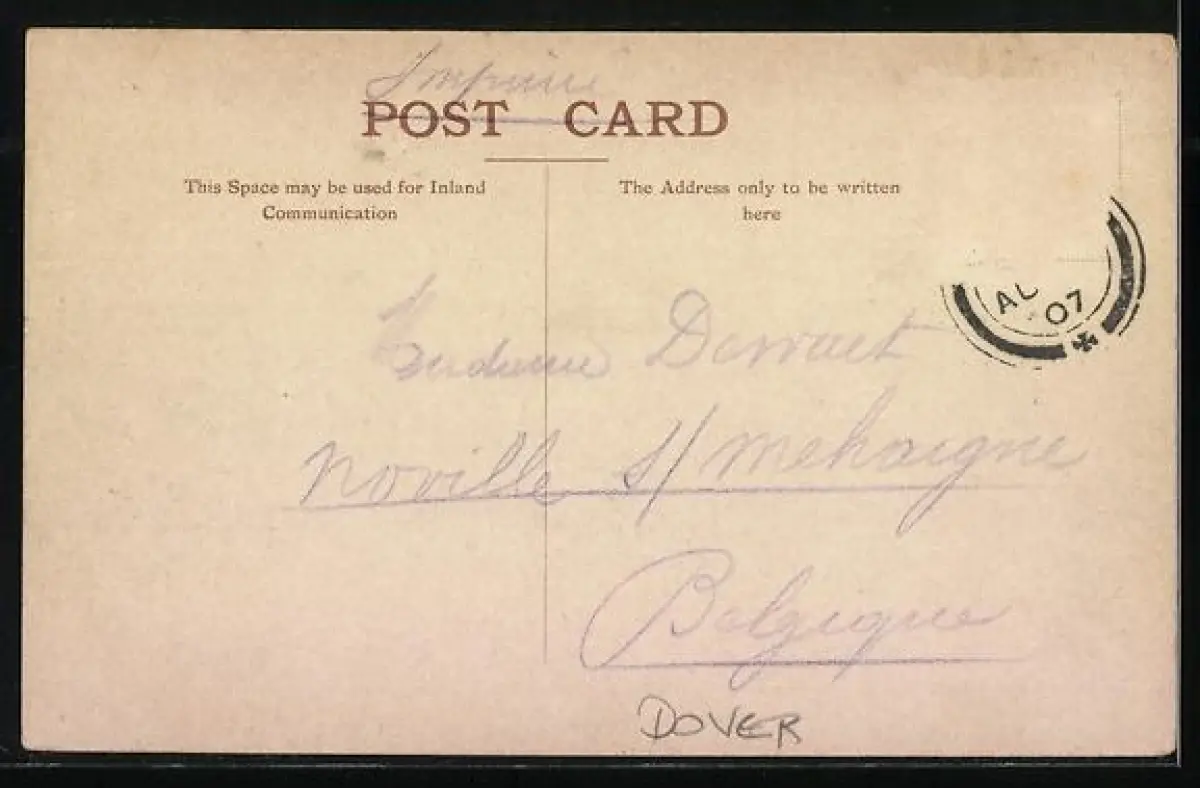 Imprimé
POST CARD
This Space may be used for Inland
Communication
The Address only to be written
here
AU
07
Noville s/ Mehaigne
Belgique
DOVER